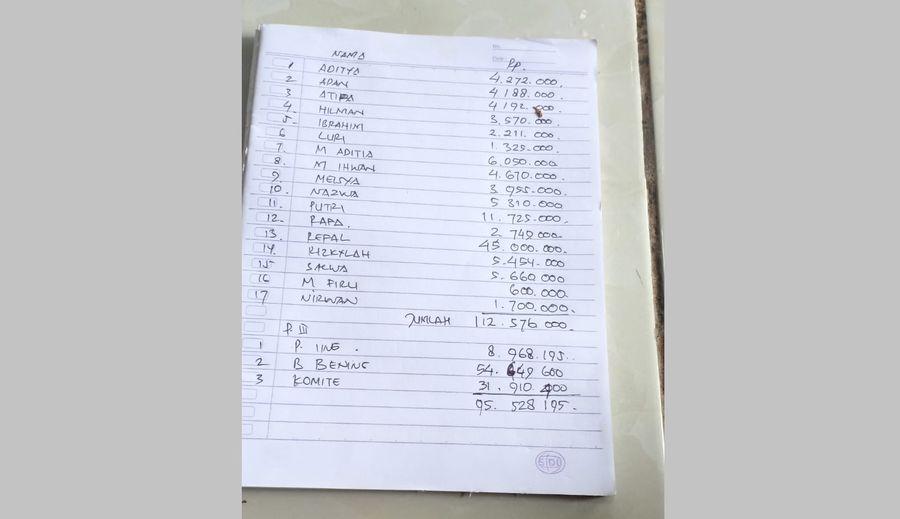 No.
Date
NAMA Rp.
1 ADITYA 4.272.000.
2 APAN 4 188.000.
3 ATIPA 4 192.000.
4. HILMAN 3.570.000.
5. IBRAHIM 2.211.000.
6 LURI 1.325.000.
7. M ADITIA 6.050.000
8. M IHWAN 4.670.000.
9. MELSYA 3 955.000.
10. NAZWA 5 310.000
11. PUTRI 11.725.000.
12. RAPA. 2 749 000
13. REPAL 45.000.000.
14. RIZKYLAH 5.454.000
15 SALWA 5.660 000
16 M FIRLI 600.000.
17 NIRWAN 1.700.000.
JUMLAH 112.576 000.
P. III
1 P. IING. 8.968.195.
2 B BENING 54.649 600
3 KOMITE 31.910 400
95. 528 195.
SIDU